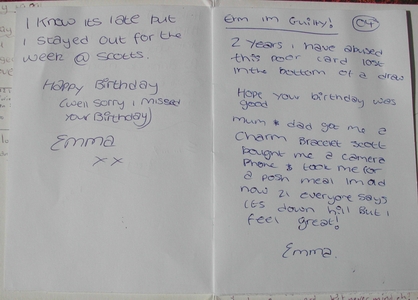 I know its late but
I stayed out for the
week @ Scotts.
Happy Birthday
(well sorry I missed
your Birthday)
Emma
xx
Erm im Guilty!
04
2 years I have abused
this poor card lost
in the bottom of a draw
Hope your birthday was
good
mum & dad got me a
Charm Bracelet Scott
bought me a camera
Phone & took me for
a posh meal
now 21 everyone says
its down hill But I
feel great!
Emma.